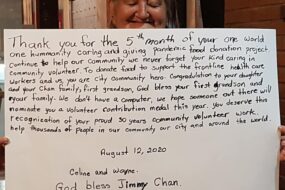 Thank you for the 5th month of your one world
one hummanity caring and giving pandemic food donation project.
Continue to help our community we never forget your kind caring in
community volunteer. To donate food to support the frontline health care
workers and us, you are city community hero. Congratulation to your daughter
and your Chan family, first grandson, God bless your first grandson and
your family. We don't have a computer, we hope someone out there will
nominate you a volunteer contribution medal this year. You deserve this
recognization of your proud 30 years community volunteer work.
help thousands of people in our community our city and around the world.
August 12, 2020
Celine and Wayne.
God bless Jimmy Chan.